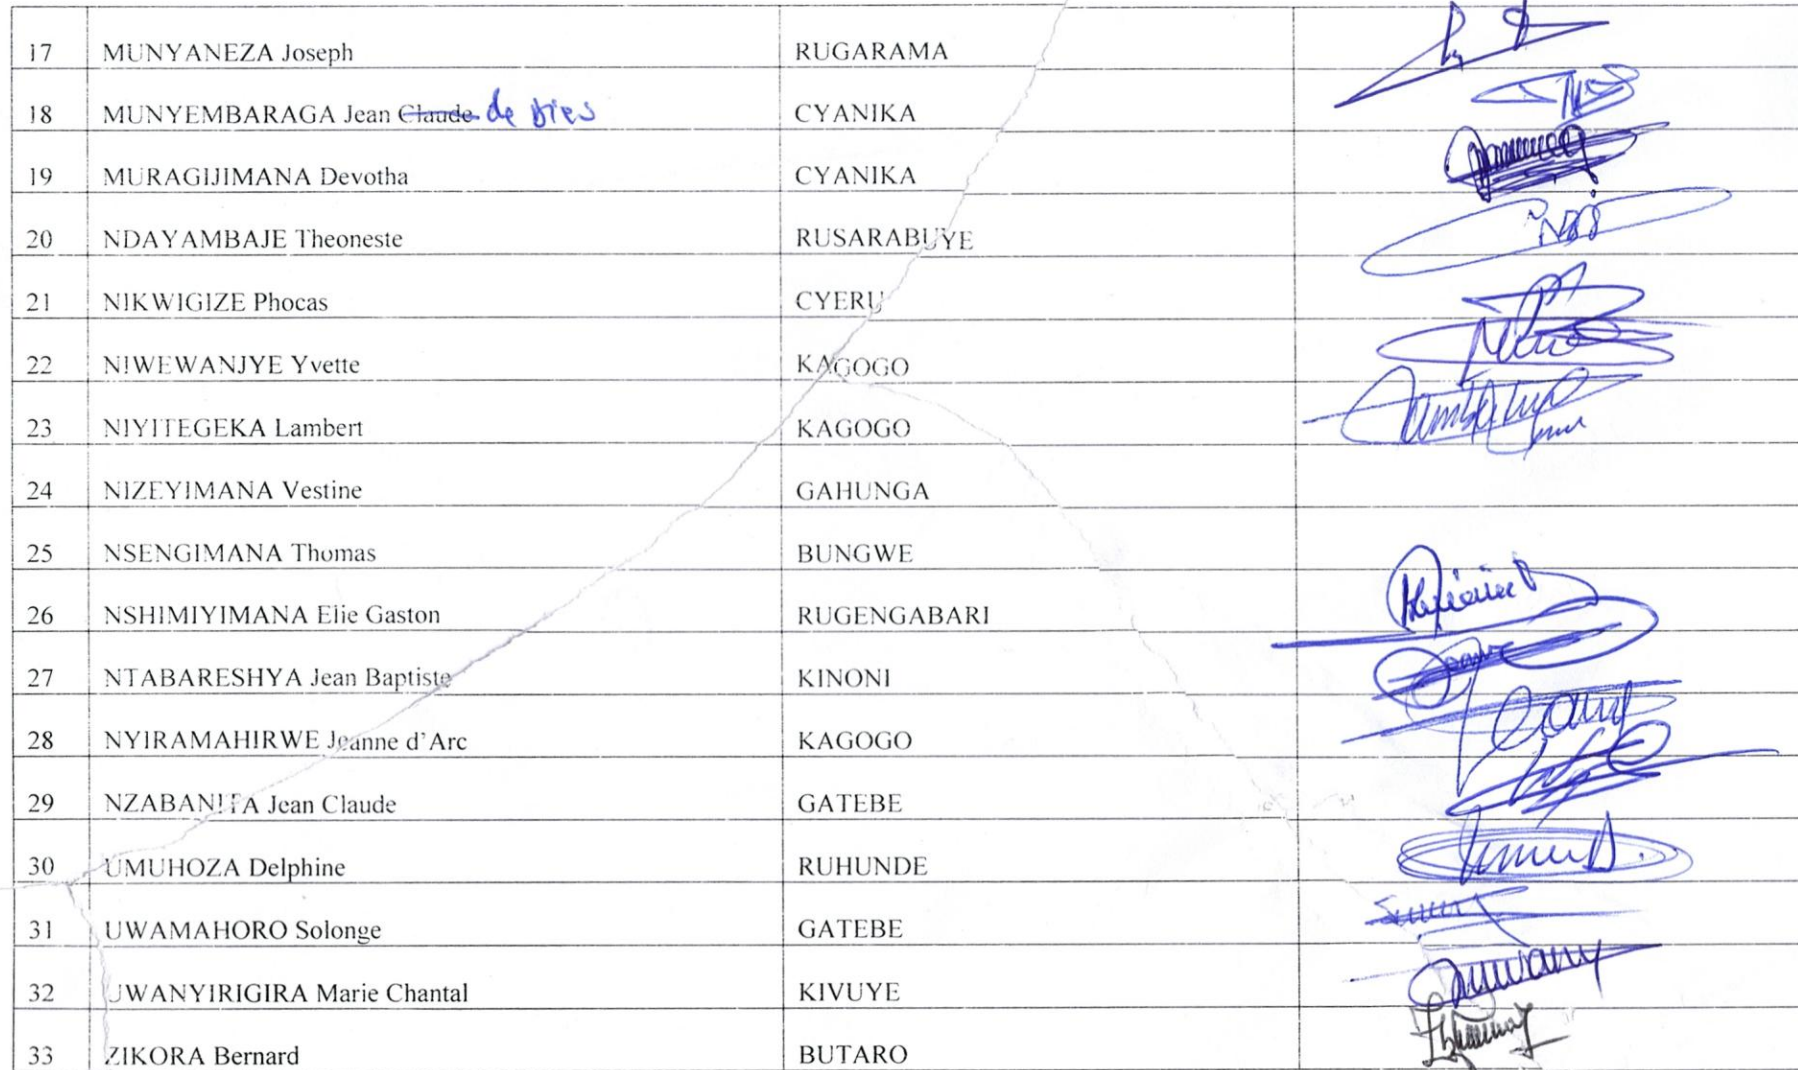 17 MUNYANEZA Joseph RUGARAMA
18 MUNYEMBARAGA Jean Claude de Dieu CYANIKA
19 MURAGIJIMANA Devotha CYANIKA
20 NDAYAMBAJE Theoneste RUSARABUYE
21 NIKWIGIZE Phocas CYERU
22 NIWEWANJYE Yvette KAGOGO
23 NIYITEGEKA Lambert KAGOGO
24 NIZEYIMANA Vestine GAHUNGA
25 NSENGIMANA Thomas BUNGWE
26 NSHIMIYIMANA Elie Gaston RUGENGABARI
27 NTABARESHYA Jean Baptiste KINONI
28 NYIRAMAHIRWE Jeanne d'Arc KAGOGO
29 NZABANITA Jean Claude GATEBE
30 UMUHOZA Delphine RUHUNDE
31 UWAMAHORO Solonge GATEBE
32 UWANYIRIGIRA Marie Chantal KIVUYE
33 ZIKORA Bernard BUTARO